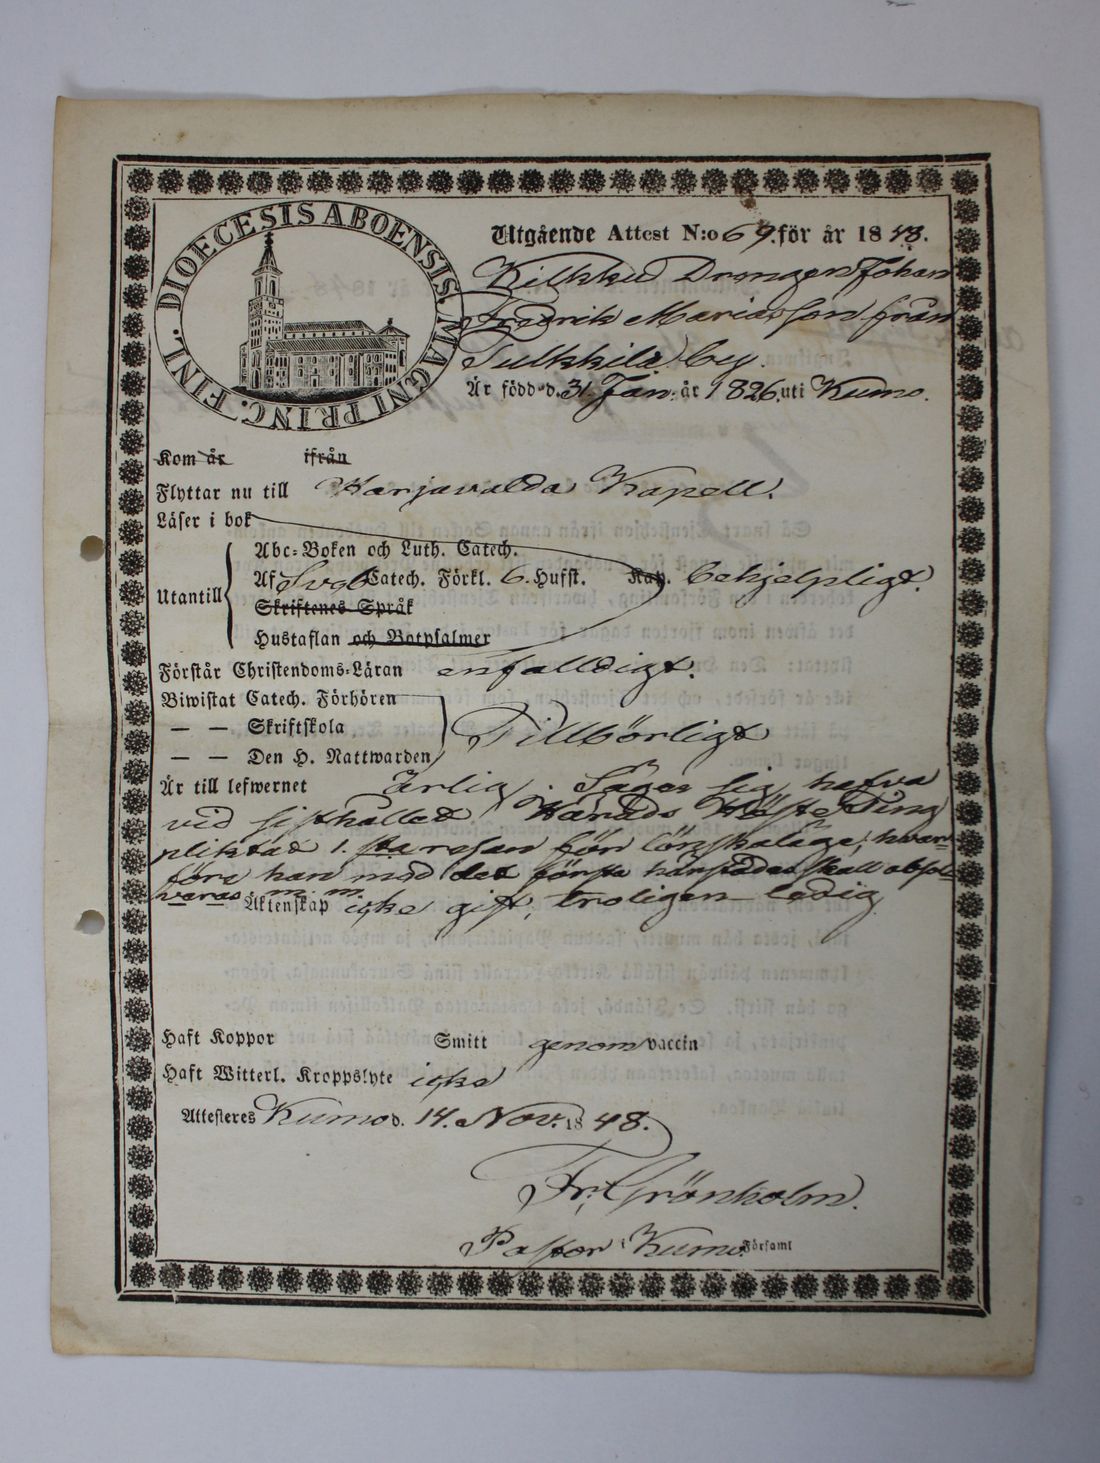 DIOECESIS ABOENSIS. MAGNI PRINC. FINL.
Utgående Attest N:o 69. för år 1848.
Kilkku Drengen Johan
Fredrik Mariasson från
Tulkkila by.
Är född d. 31. Jan: år 1826. uti Kumo.
Kom år ifrån
Flyttar nu till Harjavalda Kapell.
Läser i bok
Abc-Boken och Luth. Catech.
Utantill Af Sveb Catech. Förkl. 6. Hufst. Kap. behjelpligt.
Skriftenes Språk
Hustaflan och Botpsalmer
Förstår Christendoms-Läran enfaldigt.
Biwistat Catech. Förhören
— — Skriftskola Tillbörligt
— — Den H. Nattwarden
Är till lefwernet Ärlig, Säger sig hafva
vid sisthållet Härads Höste Ting
pliktat 1. sta resan för lönskaläge; hvar-
före han med det första härstädes skall absol-
veras m. m.
Äktenskap icke gift, troligen ledig
Haft Koppor Smitt genom vaccin
Haft Witterl. Kroppslyte icke
Attesteres Kumo d. 14. Nov: 1848.
Fr. Grönholm.
Pastor i Kumo Församl